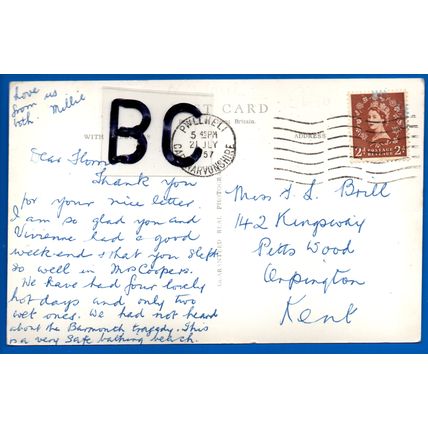 Love us
from Millie
both
BC
ST CARD
t Britain.
WITH
ADDRESS
PWLLHELI
5 45PM
21 JLY
57
CAERNARVONSHIRE
POSTAGE
REVENUE
2D 2D
Dear
Thank you
for your nice letter
I am so glad you and
Vivienne had a good
week-end & that you slept
so well in Mrs Coopers.
We have had four lovely
hot days and only two
wet ones. We had not heard
about the Barmouth tragedy. This
is a very safe bathing beach.
REAL PHOTOGRAPH
Miss Brill
142 Kingsway
Petts Wood
Orpington
Kent